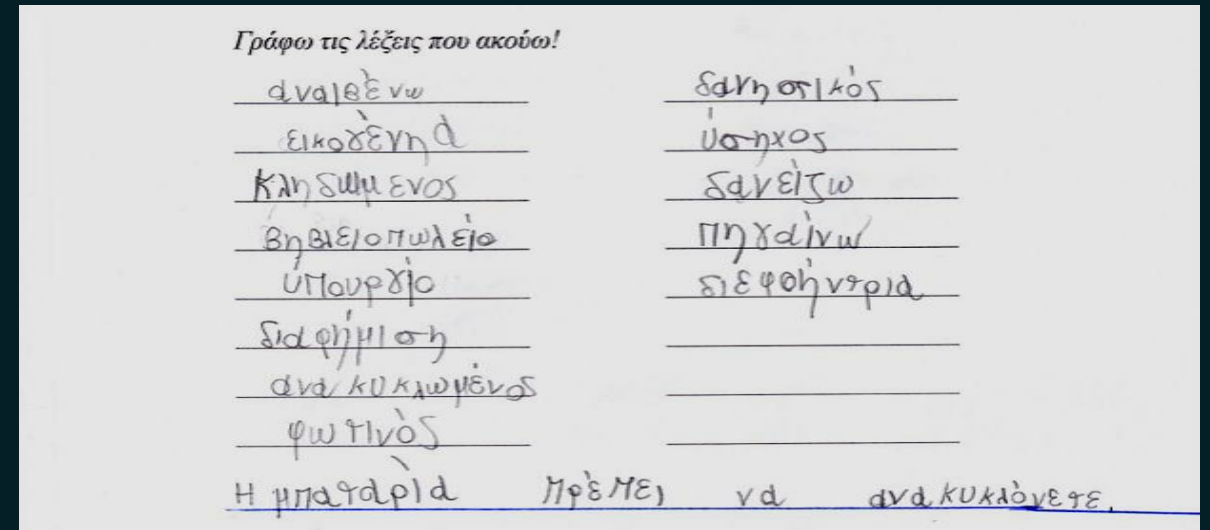 Γράφω τις λέξεις που ακούω!
αναιβένω
εικογένηα
Κληδωμενος
βηβιειοπωλείο
ύπουργίο
διαφήμιση
ανακυκλωμένος
φωτινός
δανηστικός
ύσηχος
δανείζω
πηγαίνω
διεφθήντρια
Η μπαταρία πρέπει να ανακυκλόνετε.